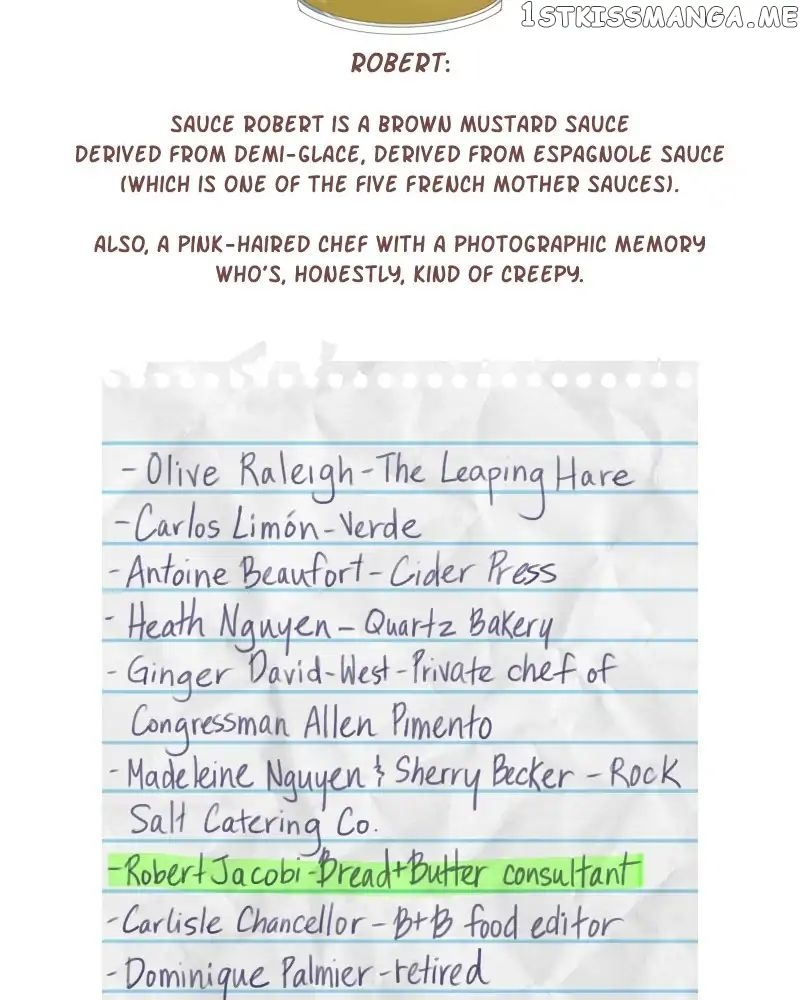 1STKISSMANGA.ME
ROBERT:
SAUCE ROBERT IS A BROWN MUSTARD SAUCE
DERIVED FROM DEMI-GLACE, DERIVED FROM ESPAGNOLE SAUCE
(WHICH IS ONE OF THE FIVE FRENCH MOTHER SAUCES).
ALSO, A PINK-HAIRED CHEF WITH A PHOTOGRAPHIC MEMORY
WHO'S, HONESTLY, KIND OF CREEPY.
- Olive Raleigh - The Leaping Hare
- Carlos Limón - Verde
- Antoine Beaufort - Cider Press
- Heath Nguyen - Quartz Bakery
- Ginger David-West - Private chef of
Congressman Allen Pimento
- Madeleine Nguyen & Sherry Becker - Rock
Salt Catering Co.
- Robert Jacobi - Bread + Butter consultant
- Carlisle Chancellor - B+B food editor
- Dominique Palmier - retired